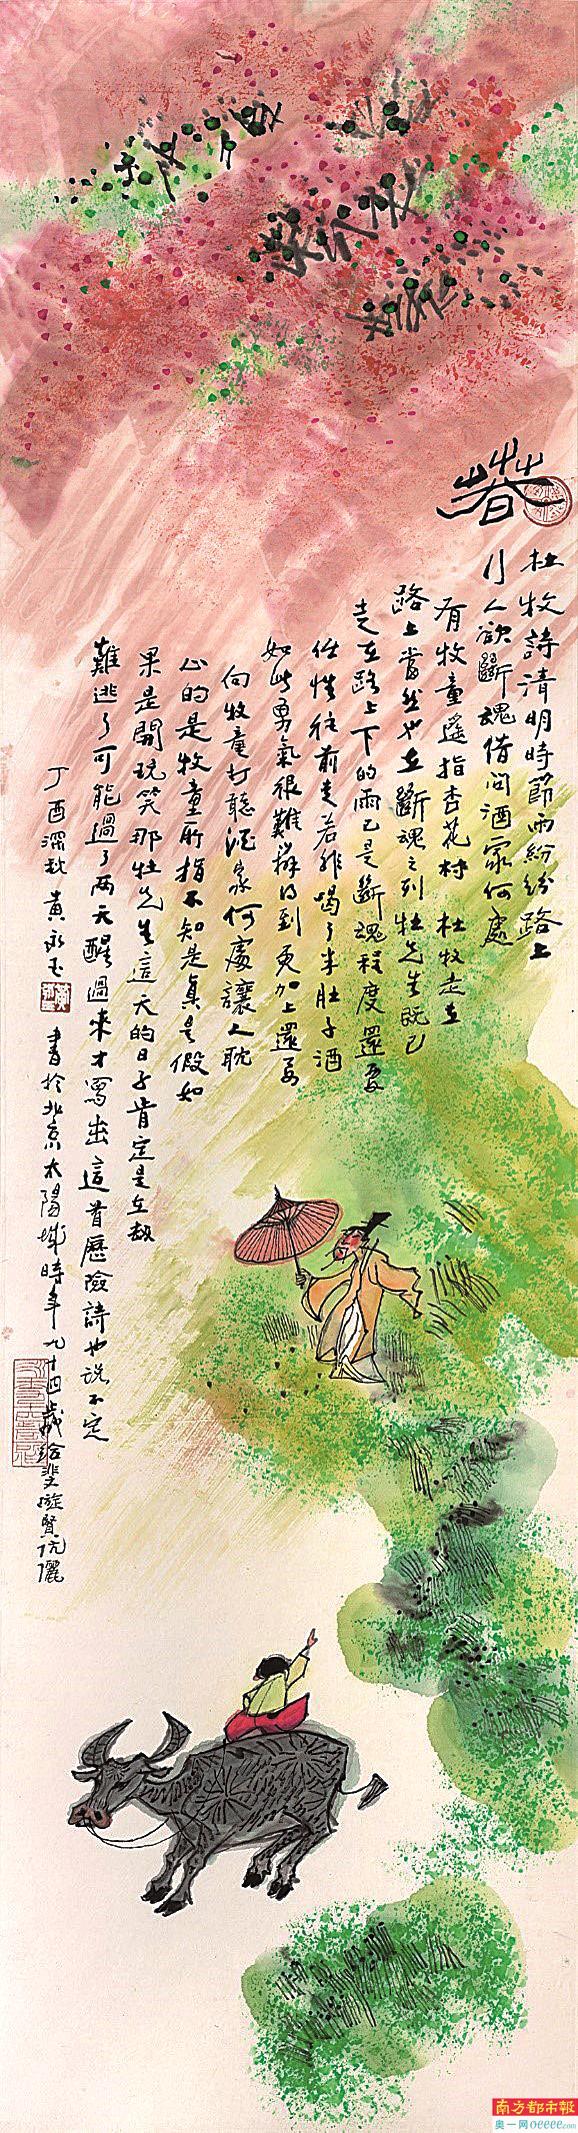 春
杜牧詩清明時節雨紛紛路上
行人欲斷魂借问酒家何處
有牧童遥指杏花村 杜牧走在
路上當然也在斷魂之列杜先生既已
走在路上下的雨已是斷魂程度還要
任性往前走若非喝了半肚子酒
如此勇氣很難辦得到更加上還要
向牧童打聽酒家何處讓人耽
心的是牧童所指不知是真是假如
果是開玩笑那杜先生這一天的日子肯定是在劫
難逃了可能過了两天醒過來才寫出這首歷險詩也说不定
丁酉深秋黄永玉 書於北京太陽城時年九十四歲给斐漩賢伉儷
南方都市報
奥一网oeeee.com